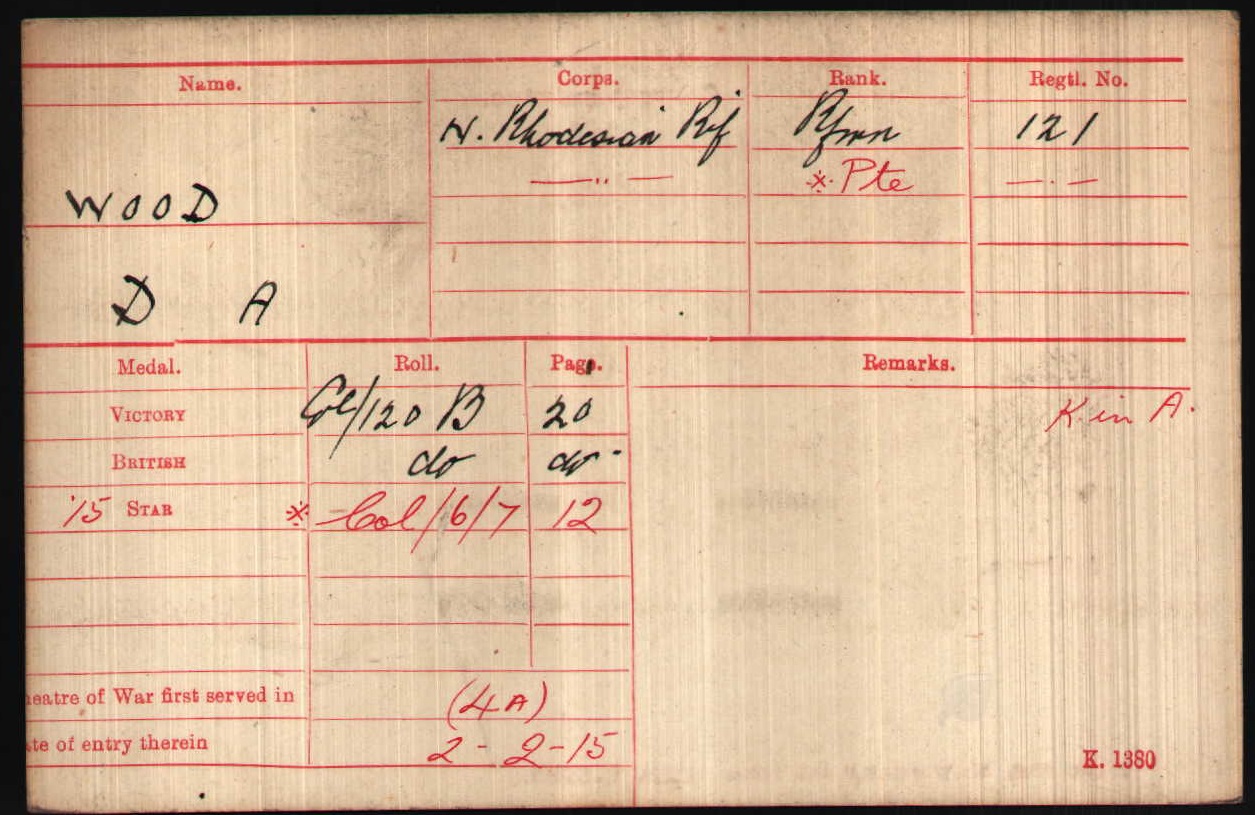 Name. Corps. Rank. Regtl. No.
N. Rhodesian Rif Rfmn 121
—〃— * Pte —·—
WOOD
D A
Medal. Roll. Page. Remarks.
VICTORY Col/120 B 20 K in A.
BRITISH do do
'15 STAR * Col/6/7 12
eatre of War first served in (4A)
te of entry therein 2-2-15
K. 1380